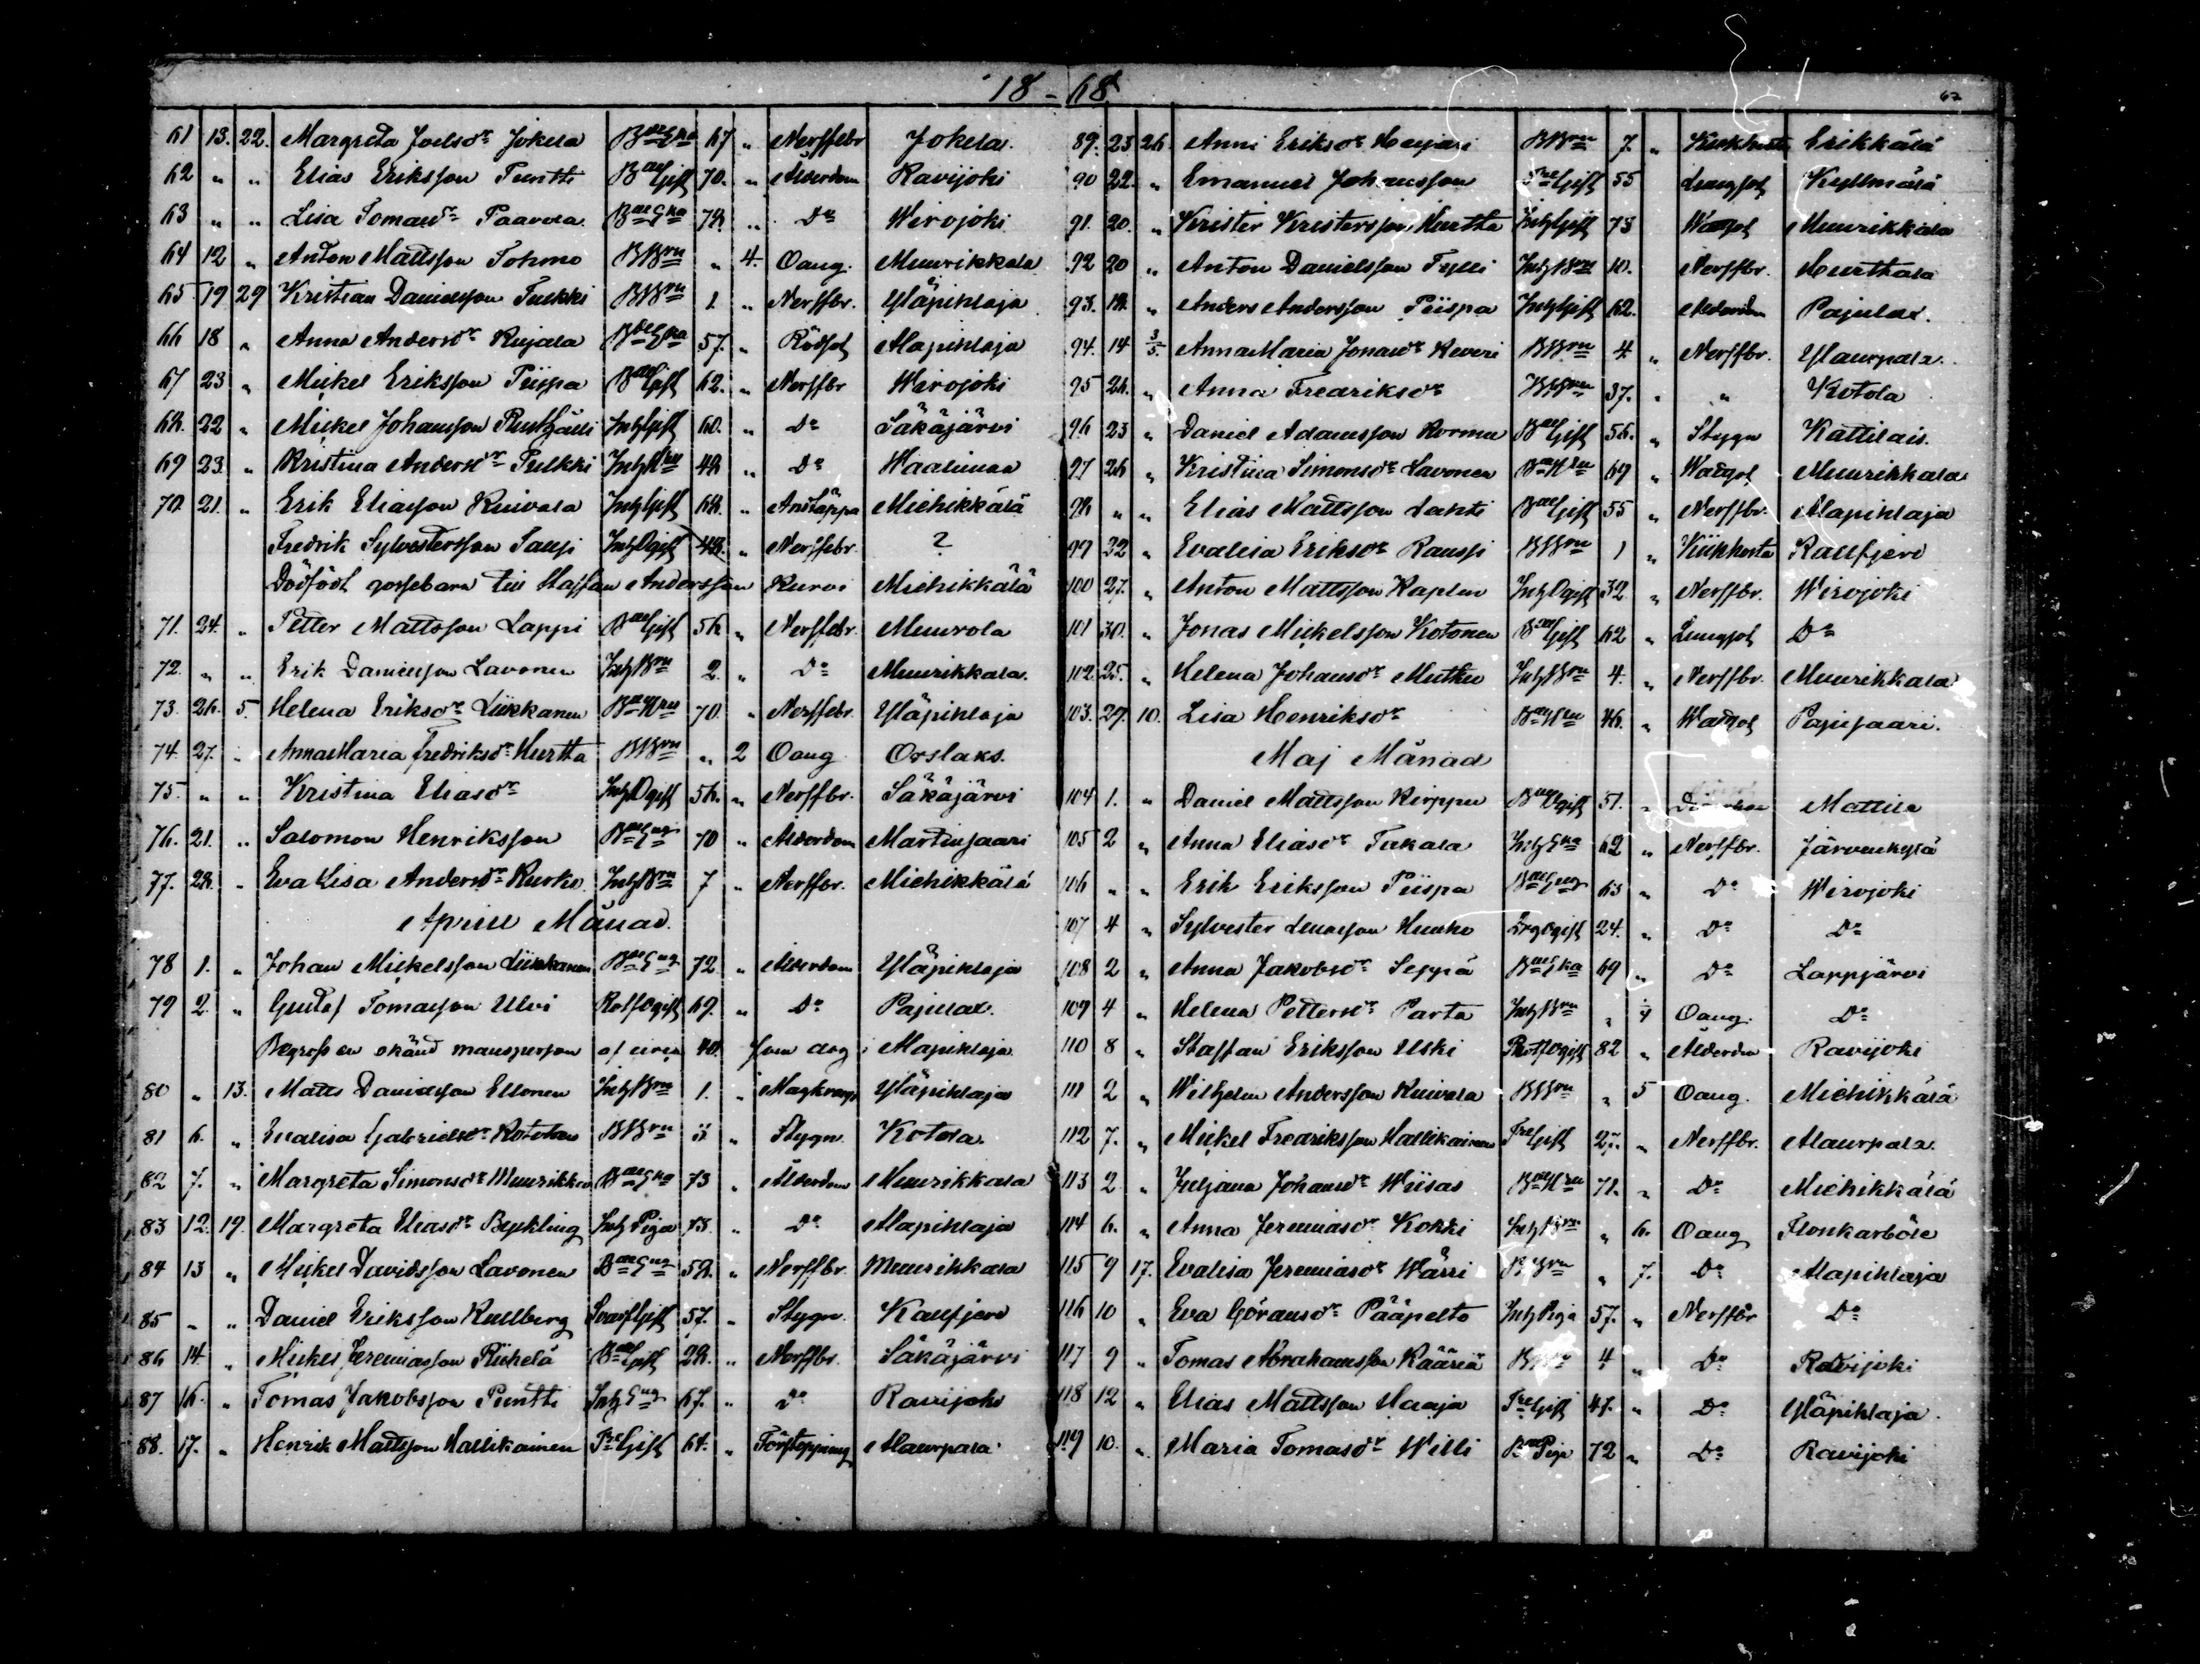 18 - 68
62
61 13. 22. Margreta Joelsdr Jokela Bde Eka 67 " Nerffebr Jokela.
62 " " Elias Eriksson Puntti Bde Gift 70. " Ålderdom Ravijoki
63 " " Lisa Tomasdr Paavola Bde Eka 78. " Do Wirojoki
64 12 " Anton Mattsson Tohmo BBrn " 4. Oang. Muurikkala
65 19 29 Kristian Danielsson Tulkki BBrn 1. " Nerffbr. Yläpihlaja
66 18 " Anna Andersdr Kujala Bde Eka 57. " Rödsot Alapihlaja
67 23 " Mickel Eriksson Piispa Bde Gift 62. " Nerffbr Wirojoki
68. 22 " Mickel Johansson Inhs Gift 60. " Do Säkäjärvi
69 23. " Kristina Andersdr Tulkki Inhs 48 " Do Waalimaa
70. 21. " Erik Eliasson Kuivala Inhs Gift 68. " Andtäppa Miehikkälä
Fredrik Sylvestersson Saupi Inhs Ogift 48. " Nerffebr. ?
Dödfödt gossebarn till Staffan Andersson Kurvi Miehikkälä
71. 24. " Petter Mattsson Lappi Bde Gift 56 " Nerffebr. Muurola
72. " " Erik Danielsson Lavonen Inhs Brn 2. " Do Muurikkala.
73. 26. 5. Helena Eriksdr Liikkanen Bde 70. " Nerffebr. Yläpihlaja
74. 27. " Anna Maria Fredriksdr Hurtta BBrn " 2 Oang Orslaks.
75. " " Kristina Eliasdr Inhs Ogift 56. " Nerffbr. Säkäjärvi
76. 21. " Salomon Henriksson Bde Eng 70 " Ålderdom Martinsaari
77. 28. " Eva Lisa Andersdr Kurko Inhs Brn 7 " Nerffbr. Miehikkälä
Aprill Månad.
78 1. " Johan Mickelsson Liikkanen Bde Eng 72 " Ålderdom Yläpihlaja
79 2. " Gustaf Tomasson Ulvi Rotf Ogift 69. " Do Pajulax.
Begrofs en okänd mansperson af circa 40. som dog i Alapihlaja
80 " 13. Matts Danielsson Ellonen Inhs Brn 1. " Magkramp Yläpihlaja
81 6. " Evalisa Gabrielsdr BBrn " Stygn Kotola.
82 7. " Margreta Simonsdr Muurikka Bde Eka 73 " Ålderdom Muurikkala
83 12. 19. Margreta Eliasdr Byckling Inhs Piga 73. " Do Alapihlaja
84 13 " Mickel Davidsson Lavonen Bde Eng 58. " Nerffbr. Muurikkala
85 " " Daniel Eriksson Kullberg Gift 57. " Stygn Kalfjerd
86 14. " Mickel Jeremiasson Riihelä Bde Gift 28. " Nerffbr. Säkäjärvi
87 16. " Tomas Jakobsson Puntti Inhs Eng 67. " Do Ravijoki
88. 17. " Henrik Mattsson Hallikainen Tre Gift 64. " Förstoppning Alaurpala.
89. 23 26. Anni Eriksdr BBrn 7. " Kikhosta Erikkälä
90 22. " Emanuel Johansson Tre Gift 55 Lungsot Kyllmälä
91. 20. " Krister Kristersson Hurtta Inhs Gift 73 Watsot Muurikkala
92 20 " Anton Danielsson Tylli Inhs Brn 10. Nerffbr. Hurttala
93. 18. " Anders Andersson Piispa Inhs Gift 62. Ålderdom Pajulax.
94. 14 3/5. Anna Maria Jonasdr Keveri BBrn 4 " Nerffbr. Ylaurpala.
95 26. " Anna Fredriksdr 37. " " Kotola
96 23 " Daniel Adamsson Kormu Bde Gift 56. " Stygn Kattilais.
97 26 " Kristina Simonsdr Lavonen Bde 69 " Watsot Muurikkala
98 " " Elias Mattsson Lahti Bde Gift 55 " Nerffbr. Alapihlaja
99 22 " Evalisa Eriksdr Raussi BBrn 1 " Kikhosta Kalfjerd
100 27. " Anton Mattsson Kaplun Inhs Ogift 32 " Nerffbr. Wirojoki
101 30. " Jonas Mickelsson Kotonen Bde Gift 62 " Lungsot Do
102. 25. " Helena Johansdr Mutku Inhs Brn 4. " Nerffbr. Muurikkala
103. 29. 10. Lisa Henriksdr Bde 76. " Watsot Papisaari.
Maj Månad
104 1. " Daniel Mattsson Kirppu Bde Ogift 51. " Mattila
105 2 " Anna Eliasdr Takala Inhs Eka 62 " Nerffbr. Järvenkylä
106 " " Erik Eriksson Piispa Bde Eng 63 " Do Wirojoki
107 4 " Sylvester Ogift 24. " Do Do
108 2 " Anna Jakobsdr Seppä Bde Eka 69 " Do Lappjärvi
109 4 " Helena Pettersdr Parta Inhs Brn " 4 Oang. Do
110 8 " Staffan Eriksson Uski Rotf Ogift 82 " Ålderdm Ravijoki
111 2 " Wilhelm Andersson Kuivala BBrn " 5 Oang. Miehikkälä
112 7. " Mickel Fredriksson Hallikainen Tre Gift 27. " Nerffbr. Alaurpala.
113 2. " Juljana Johansdr Wiisas Bde 71. " Do Miehikkälä
114 6. " Anna Jeremiasdr Kokki Inhs Brn " 6. Oang Flonkarböle
115 9 17. Evalisa Jeremiasdr Wärri BBrn " 7. Do Alapihlaja
116 10 " Eva Göransdr Pääpelto Inhs Piga 57. " Nerffbr Do
117 9 " Tomas Abrahamsson Kääriä BBrn 4 " Do Ravijoki
118 12 " Elias Mattsson Haaja Tre Gift 47. " Do Yläpihlaja.
119 10. " Maria Tomasdr Willi Bde Pig 72 " Do Ravijoki